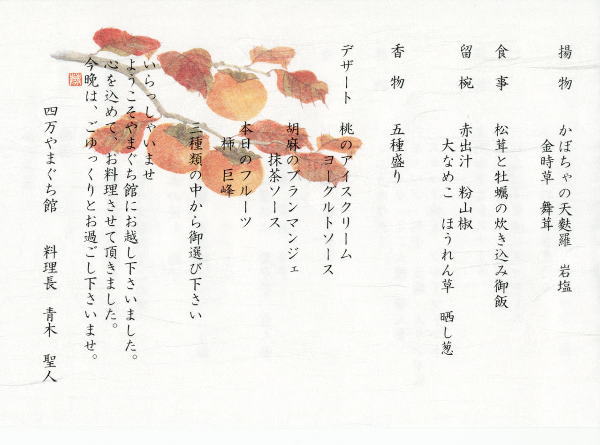 揚物　かぼちゃの天麩羅　岩塩
金時草　舞茸
食事　松茸と牡蠣の炊き込み御飯
留椀　赤出汁　粉山椒
大なめこ　ほうれん草　晒し葱
香物　五種盛り
デザート　桃のアイスクリーム
ヨーグルトソース
胡麻のブランマンジェ
抹茶ソース
本日のフルーツ
柿　巨峰
三種類の中から御選び下さい
いらっしゃいませ
ようこそやまぐち館にお越し下さいました。
心を込めて、お料理させて頂きました。
今晩は、ごゆっくりとお過ごし下さいませ。
四万やまぐち館　料理長　青木　聖人